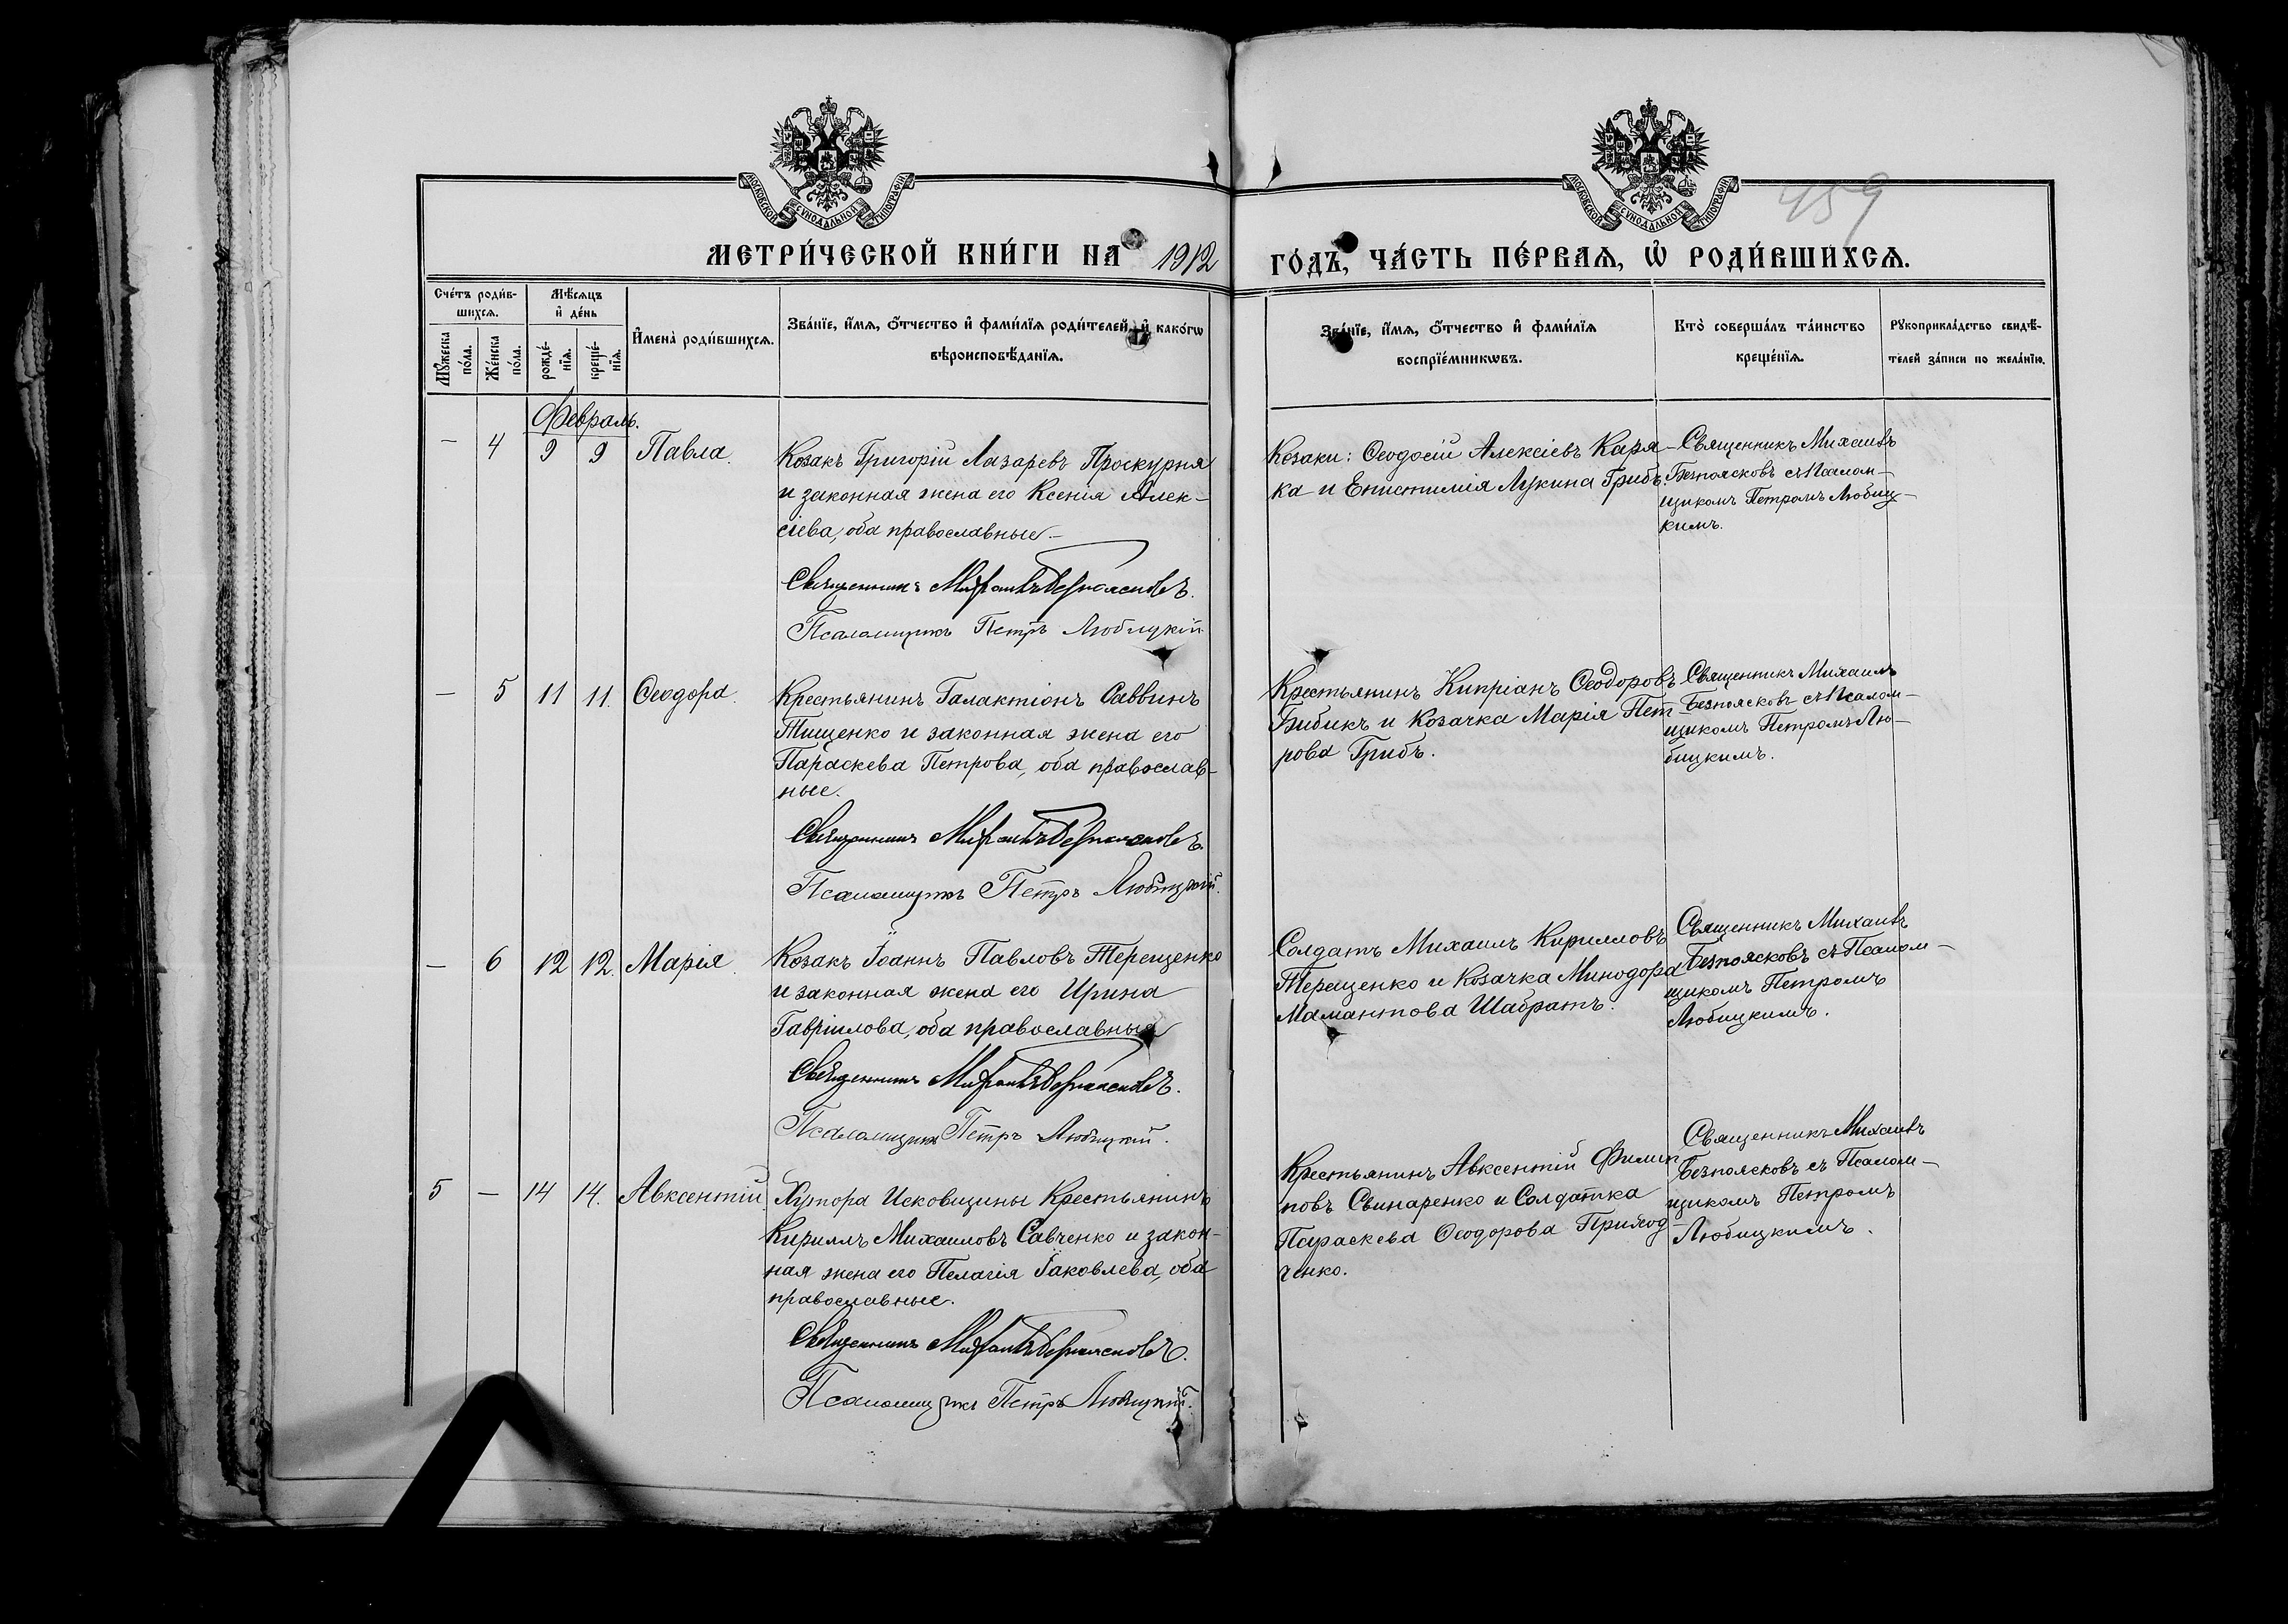 МОСКОВСКОЙ СѴНОДАЛЬНОЙ ТИПОГРАФІИ
МОСКОВСКОЙ СѴНОДАЛЬНОЙ ТИПОГРАФІИ
459
МЕТРИ́ЧЕСКОЙ КНИ́ГИ НА 1912 ГО́ДЪ, ЧА́СТЬ ПЕ́РВАѦ, Ѡ҆ РОДИ́ВШИХСѦ.
Сче́тъ роди́в-
шихсѧ.
Мꙋ́жеска по́ла.
Же́нска по́ла.
Мѣ́сѧцъ
и҆ де́нь
рожде́-
нїѧ.
креще́-
нїѧ.
И҆мена̀ роди́вшихсѧ.
Зва́нїе, и҆́мѧ, ѻ҆́тчество и҆ фами́лїѧ роди́телей, и҆ како́гѡ
вѣроисповѣ́данїѧ.
Зва́нїе, и҆́мѧ, ѻ҆́тчество и҆ фами́лїѧ
воспрїе́мникѡвъ.
Кто̀ соверша́лъ та́инство
креще́нїѧ.
Рꙋкоприкла́дство свидѣ́-
телей за́писи по жела́нїю.
Февраль.
— 4 9 9 Павла.
Козакъ Григорій Лазаревъ Проскурня
и законная жена его Ксенія Алек-
сіева, оба православные.—
Священникъ Михаилъ Безпоясковъ.
Псаломщикъ Петръ Любицкій
Козаки: Ѳеодосій Алексіевъ Каря-
ка и Епистимія Лукина Грибъ
Священникъ Михаилъ
Безпоясковъ съ Псалом-
щикомъ Петромъ Любиц-
кимъ.
— 5 11 11. Ѳеодора.
Крестьянинъ Галактіонъ Саввинъ
Тищенко и законная жена его
Параскева Петрова, оба православ-
ные.
Священникъ Михаилъ Безпоясковъ.
Псаломщикъ Петръ Любицкій.
Крестьянинъ Кипріанъ Ѳеодоровъ
Бибикъ и Козачка Марія Пет-
рова Грибъ.
Священникъ Михаилъ
Безпоясковъ съ Псалом-
щикомъ Петромъ Лю-
бицкимъ.
— 6 12 12. Марія.
Козакъ Іоаннъ Павловъ Терещенко
и законная жена его Ирина
Гавріилова, оба православные
Священникъ Михаилъ Безпоясковъ.
Псаломщикъ Петръ Любицкій.
Солдатъ Михаилъ Кирилловъ
Терещенко и Козачка Минодора
Мамантова Шабратъ.
Священникъ Михаилъ
Безпоясковъ съ Псалом-
щикомъ Петромъ
Любицкимъ.
5 — 14 14. Авксентій.
Хутора Исковщины Крестьянинъ
Кириллъ Михаиловъ Савченко и закон-
ная жена его Пелагія Іаковлева, оба
православные.
Священникъ Михаилъ Безпоясковъ.
Псаломщикъ Петръ Любицкій.
Крестьянинъ Авксентій Филип-
повъ Свинаренко и Солдатка
Параскева Ѳеодорова Приход-
ченко.
Священникъ Михаилъ
Безпоясковъ съ Псалом-
щикомъ Петромъ
Любицкимъ.